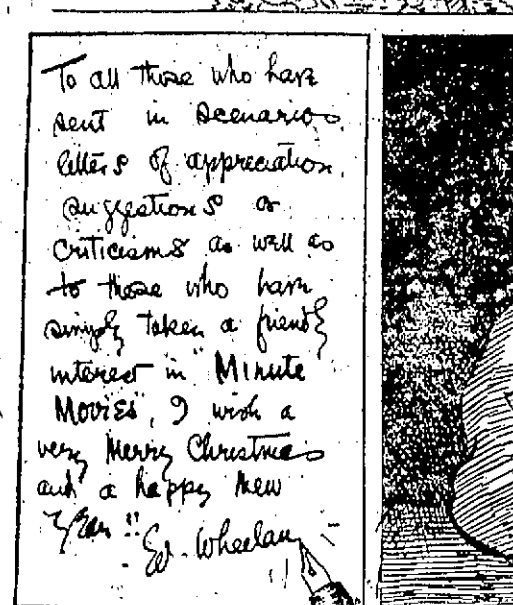 To all those who have
sent in scenarios,
letters of appreciation,
suggestions or
criticisms as well as
to those who have
simply taken a friendly
interest in "Minute
Movies", I wish a
very Merry Christmas
and a happy New
Year!! Ed. Wheelan